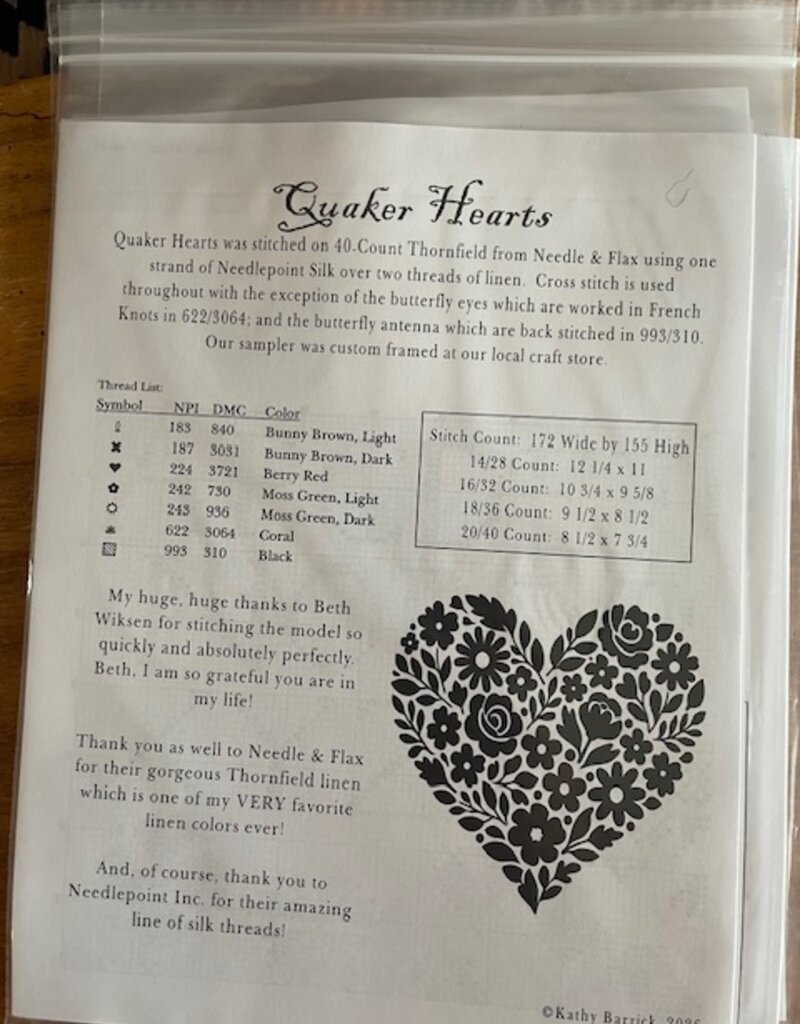 Quaker Hearts
Quaker Hearts was stitched on 40-Count Thornfield from Needle & Flax using one
strand of Needlepoint Silk over two threads of linen. Cross stitch is used
throughout with the exception of the butterfly eyes which are worked in French
Knots in 622/3064; and the butterfly antenna which are back stitched in 993/310.
Our sampler was custom framed at our local craft store.
Thread List:
Symbol NPI DMC Color
183 840 Bunny Brown, Light
187 3031 Bunny Brown, Dark
224 3721 Berry Red
242 730 Moss Green, Light
243 936 Moss Green, Dark
622 3064 Coral
993 310 Black
Stitch Count: 172 Wide by 155 High
14/28 Count: 12 1/4 x 11
16/32 Count: 10 3/4 x 9 5/8
18/36 Count: 9 1/2 x 8 1/2
20/40 Count: 8 1/2 x 7 3/4
My huge, huge thanks to Beth
Wiksen for stitching the model so
quickly and absolutely perfectly.
Beth, I am so grateful you are in
my life!
Thank you as well to Needle & Flax
for their gorgeous Thornfield linen
which is one of my VERY favorite
linen colors ever!
And, of course, thank you to
Needlepoint Inc. for their amazing
line of silk threads!
©Kathy Barrick,